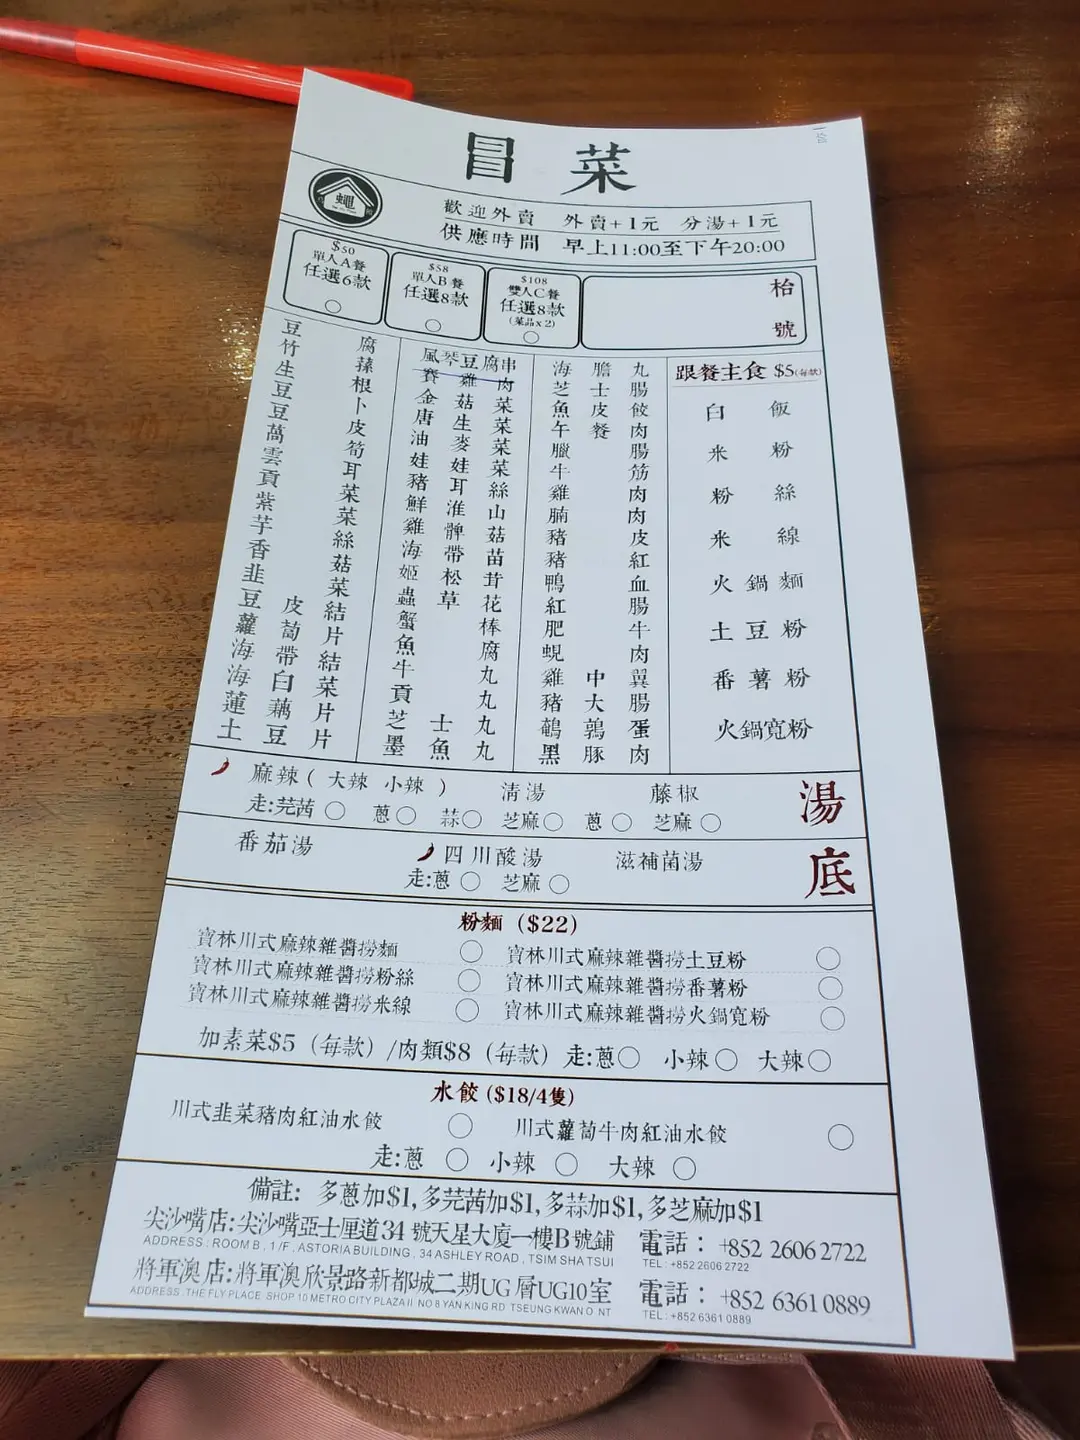 冒菜
歡迎外賣 外賣+1元 分湯+1元
供應時間 早上11:00至下午20:00
$50
單人A餐
任選6款
$58
單人B餐
任選8款
$108
雙人C餐
任選8款
(菜品x2)
枱號
豆腐
竹蓀
生根
豆卜
豆皮
萵筍
雲耳
貢菜
紫菜
芋絲
香菇
韭菜
豆皮結
蘿蔔片
海帶結
海白菜
蓮藕片
土豆片
風琴豆腐串
賽雞肉
金菇菜
唐生菜
油麥菜
娃娃菜
豬耳絲
鮮淮山
雞髀菇
海帶苗
姬松茸
蟲草花
蟹棒
魚腐
牛丸
貢丸
芝士丸
墨魚丸
海膽丸
芝士腸
魚皮餃
午餐肉
臘腸
牛筋
雞肉
腩肉
豬皮
豬紅
鴨血
紅腸
肥牛
蜆肉
雞中翼
豬大腸
鵪鶉蛋
黑豚肉
跟餐主食 $5(每款)
白飯
米粉
粉絲
米線
火鍋麵
土豆粉
番薯粉
火鍋寬粉
湯底
麻辣( 大辣 小辣 ) 清湯 藤椒
走:芫茜 蔥 蒜 芝麻 蔥 芝麻
番茄湯 四川酸湯 滋補菌湯
走:蔥 芝麻
粉麵 ($22)
寶林川式麻辣雜醬撈麵 寶林川式麻辣雜醬撈土豆粉
寶林川式麻辣雜醬撈粉絲 寶林川式麻辣雜醬撈番薯粉
寶林川式麻辣雜醬撈米線 寶林川式麻辣雜醬撈火鍋寬粉
加素菜$5 (每款) /肉類$8 (每款) 走:蔥 小辣 大辣
水餃 ($18/4隻)
川式韭菜豬肉紅油水餃 川式蘿蔔牛肉紅油水餃
走:蔥 小辣 大辣
備註: 多蔥加$1,多芫茜加$1,多蒜加$1,多芝麻加$1
尖沙嘴店:尖沙嘴亞士厘道34 號天星大廈一樓B號鋪 電話: +852 2606 2722
ADDRESS : ROOM B , 1 /F , ASTORIA BUILDING , 34 ASHLEY ROAD , TSIM SHA TSUI TEL : +852 2606 2722
將軍澳店:將軍澳欣景路新都城二期UG層UG10室 電話: +852 6361 0889
ADDRESS :THE FLY PLACE SHOP 10 METRO CITY PLAZA II NO 8 YAN KING RD TSEUNG KWAN O NT TEL : +852 6361 0889